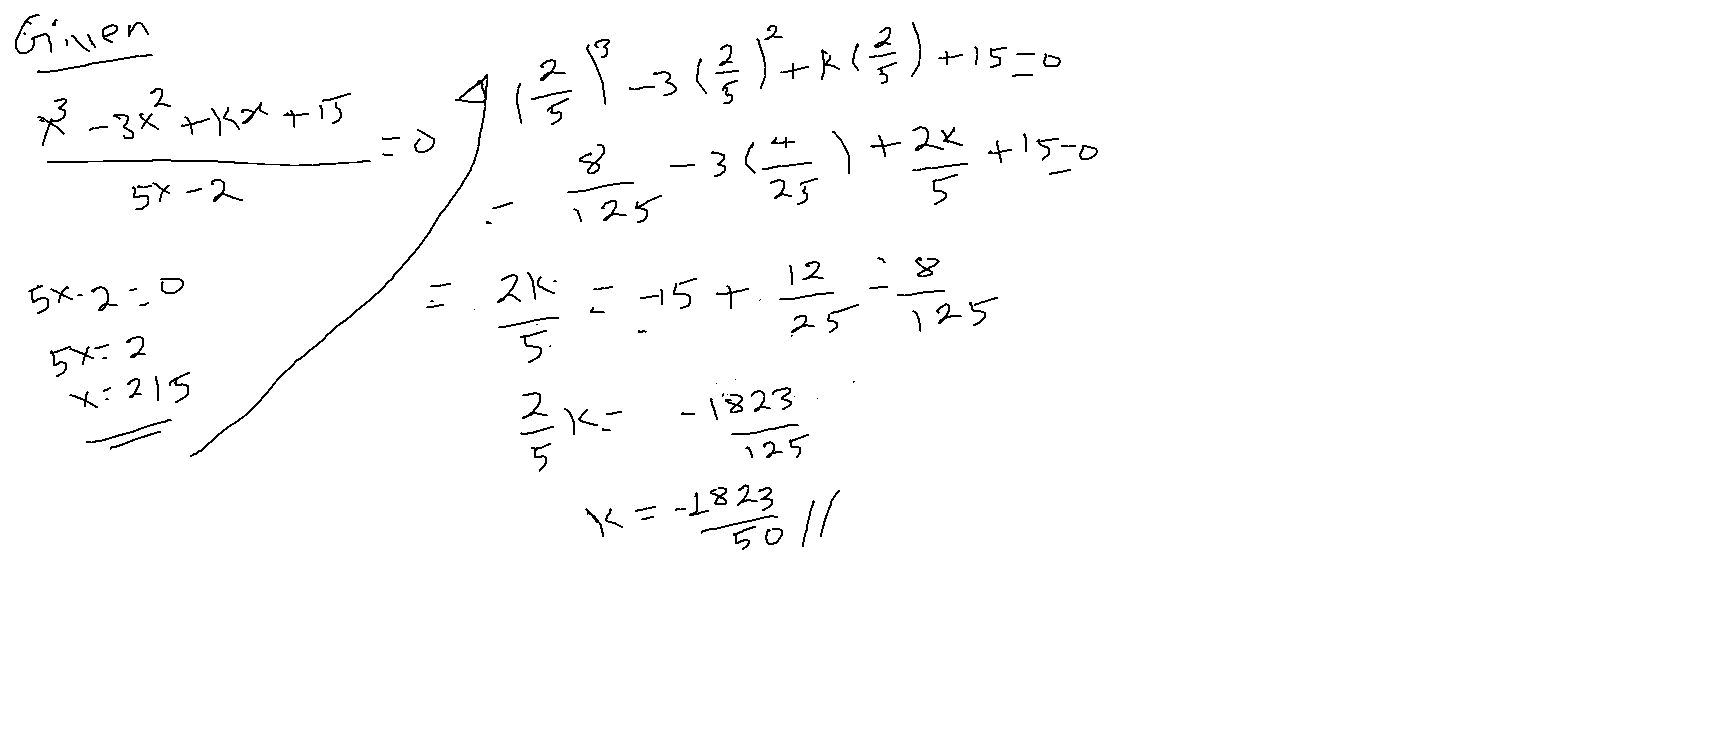 Given
x³ - 3x² + kx + 15
/ 5x - 2 = 0
5x - 2 = 0
5x = 2
x = 2/5
(2/5)³ - 3(2/5)² + k(2/5) + 15 = 0
= 8/125 - 3(4/25) + 2k/5 + 15 = 0
= 2k/5 = -15 + 12/25 - 8/125
2/5 k = -1823/125
k = -1823/50 //